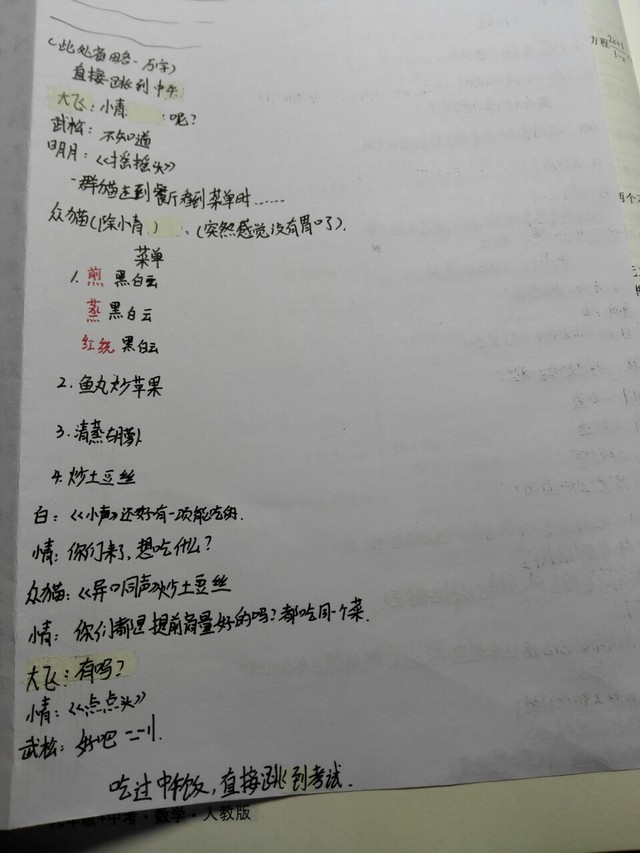 (此处省略一万字)
直接跳到中午
大飞:小青 呢?
武松:不知道
明月:《摇摇头》
一群猫走到餐厅看到菜单时……
众猫(除小青)、(突然感觉没有胃口了).
菜单
1. 煎 黑白云
蒸 黑白云
红烧 黑白云
2. 鱼丸炒苹果
3. 清蒸胡萝卜
4. 炒土豆丝
白:《小声》还好有一项能吃的.
情:你们来了,想吃什么?
众猫:《异口同声》炒土豆丝
情:你们都是提前商量好的吗?都吃同一个菜.
大飞:有吗?
情:《点点头》
武松:好吧
吃过中午饭,直接跳到考试.
中考·数学·人教版
方程
两个